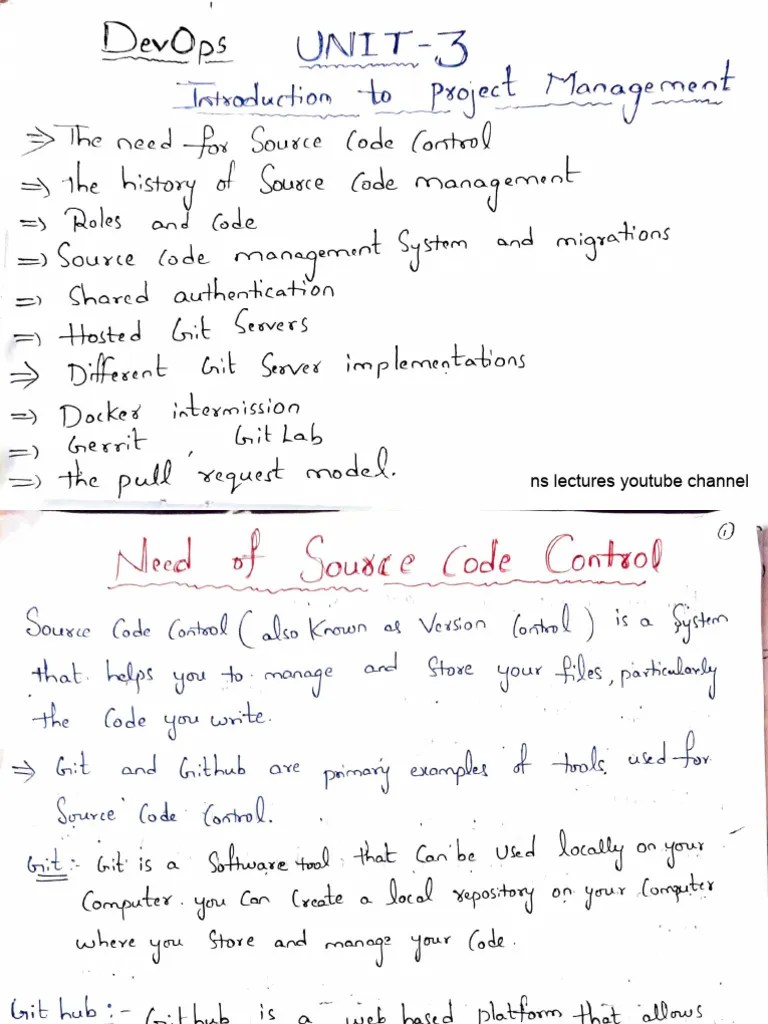 DevOps UNIT-3
Introduction to Project Management
=> The need for Source Code Control
=> The history of Source Code management
=> Roles and Code
=> Source Code management System and migrations
=> Shared authentication
=> Hosted Git Servers
=> Different Git Server implementations
=> Docker intermission
=> Gerrit , Git Lab
=> the pull request model.
ns lectures youtube channel
①
Need of Source Code Control
Source Code Control (also Known as Version Control) is a System
that helps you to manage and Store your files, particularly
the Code you write.
=> Git and Github are primary examples of tools used for
Source Code Control.
Git:- Git is a Software tool that Can be used locally on your
Computer. you Can Create a local repository on your Computer
where you Store and manage your Code.
Git hub:- Git hub is a web based platform that allows